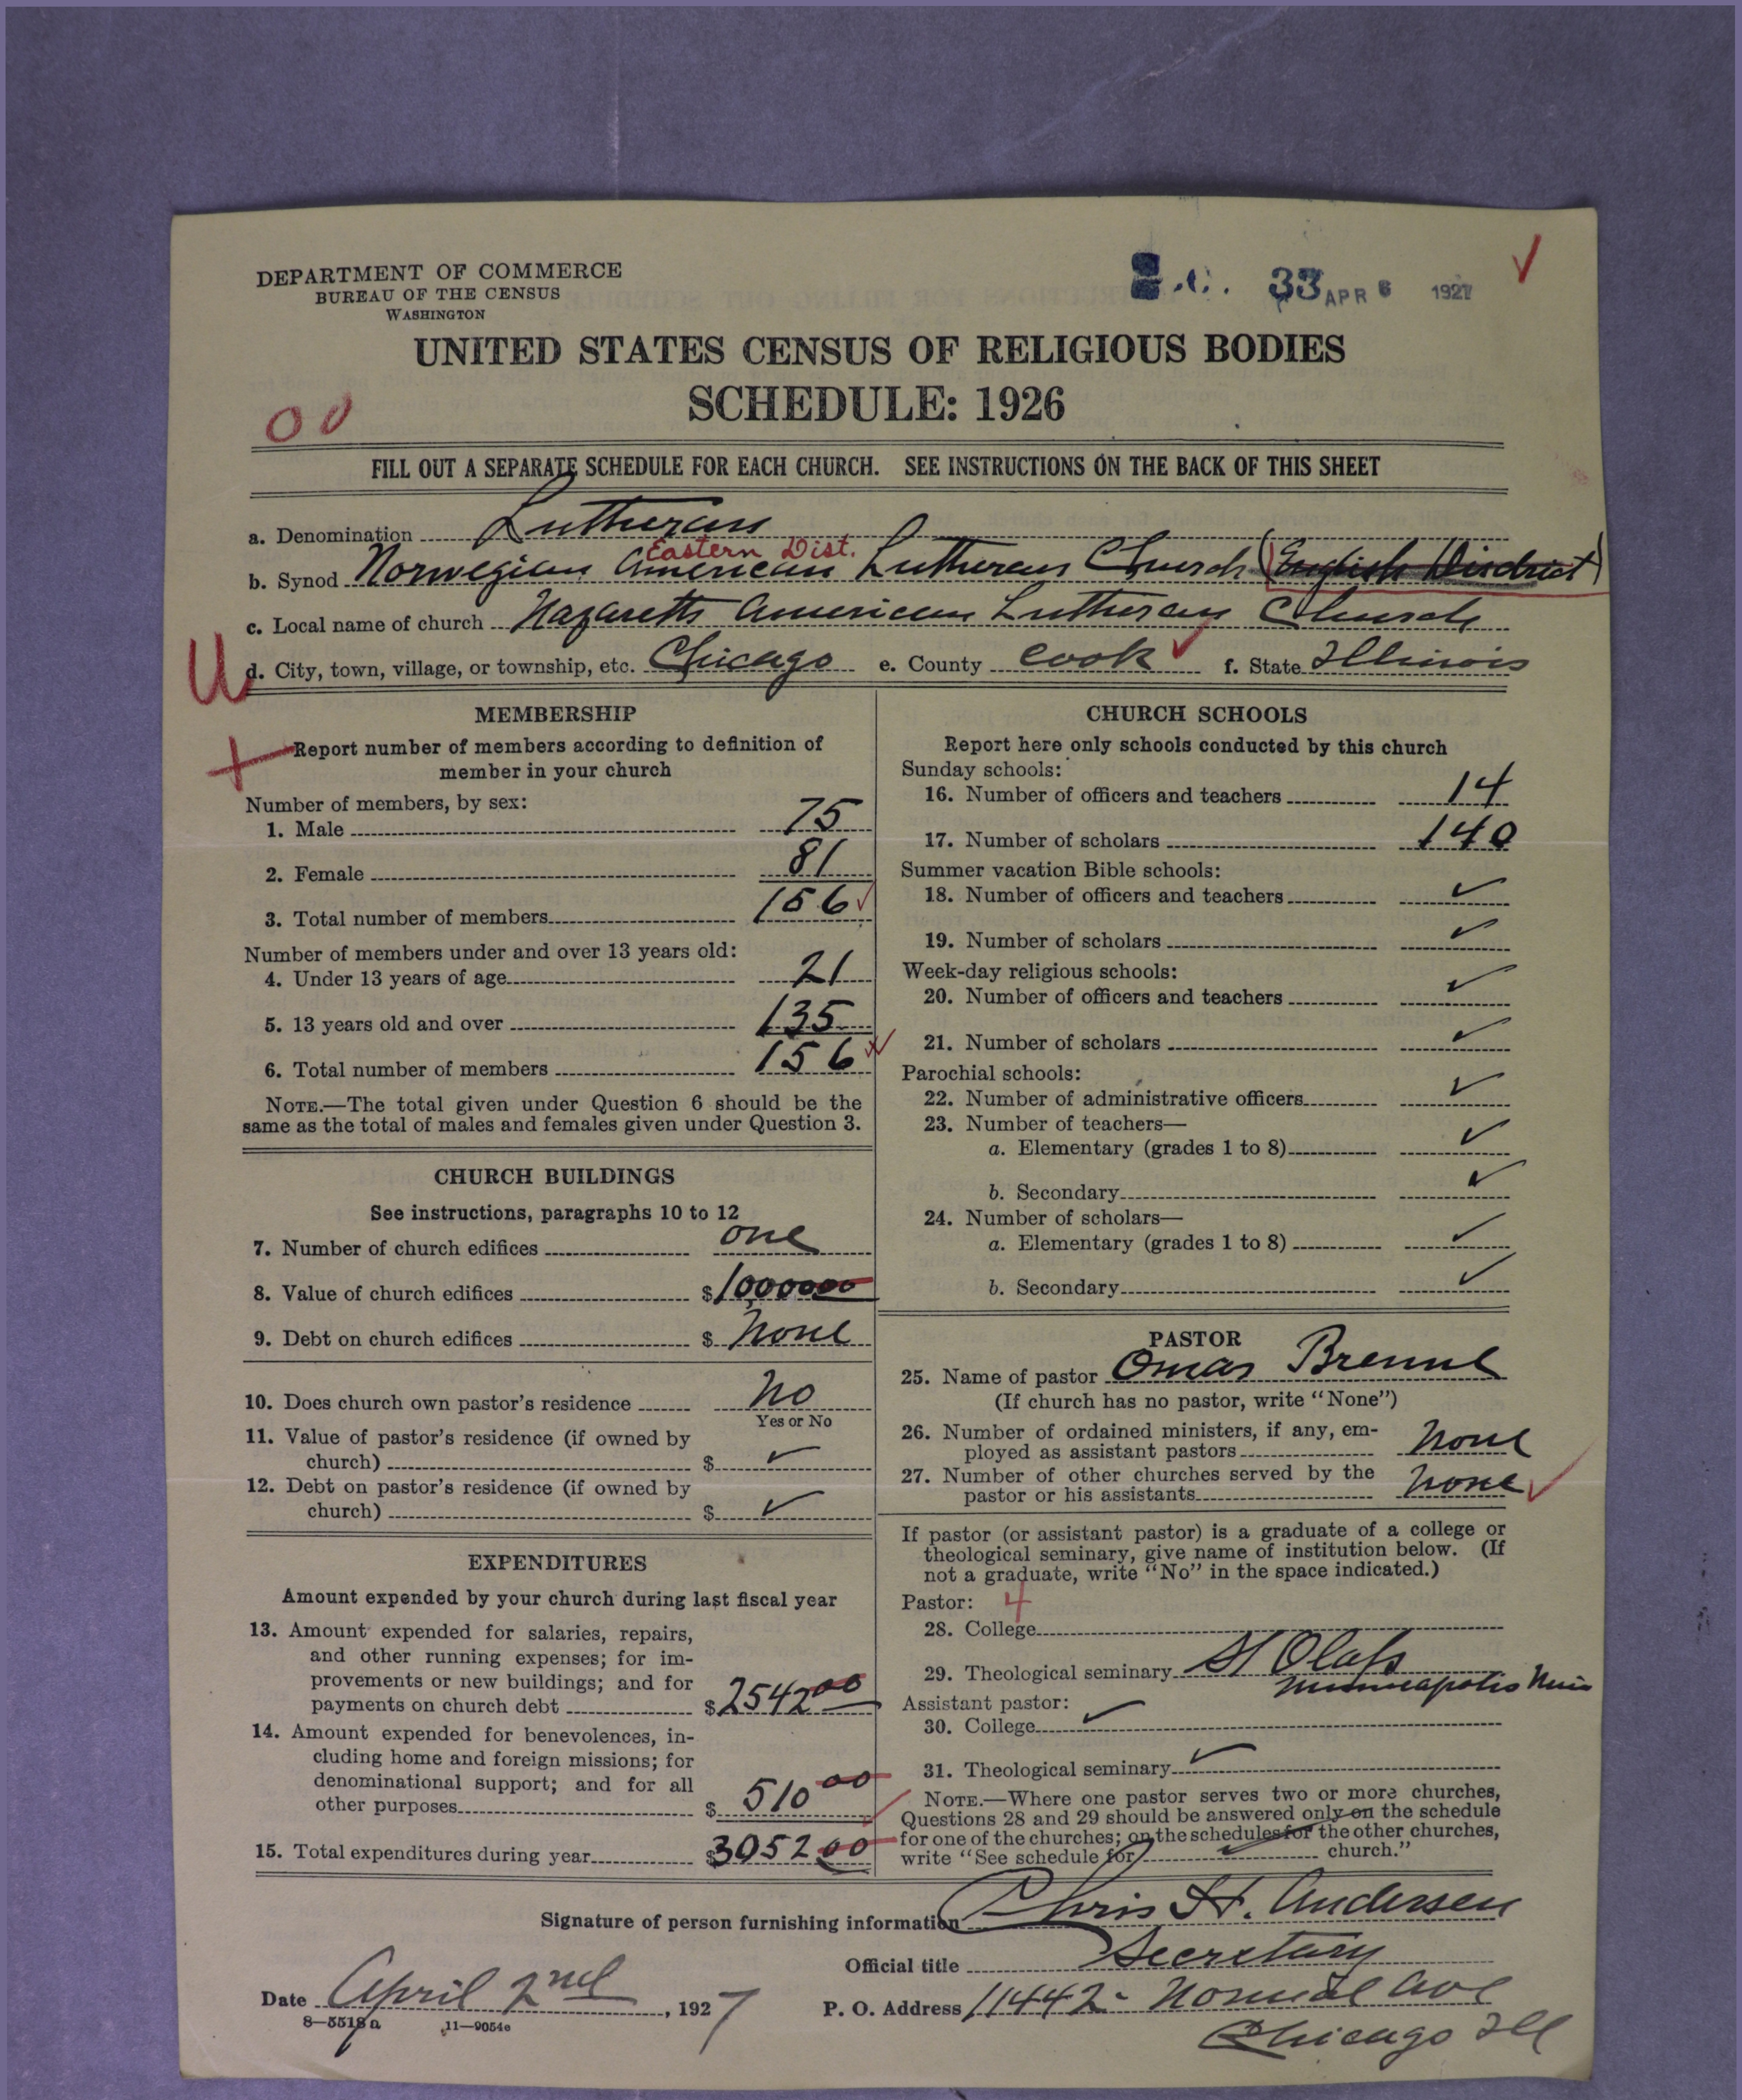 DEPARTMENT OF COMMERCE
BUREAU OF THE CENSUS
WASHINGTON
33 APR 6 1927
UNITED STATES CENSUS OF RELIGIOUS BODIES
SCHEDULE: 1926
FILL OUT A SEPARATE SCHEDULE FOR EACH CHURCH. SEE INSTRUCTIONS ON THE BACK OF THIS SHEET
a. Denomination Lutheran
Eastern Dist.
b. Synod Norwegian American Lutheran Church (English District)
c. Local name of church Nazareth American Lutheran Church
U
d. City, town, village, or township, etc. Chicago e. County Cook f. State Illinois
MEMBERSHIP
Report number of members according to definition of
member in your church
Number of members, by sex:
1. Male 75
2. Female 81
3. Total number of members 156
Number of members under and over 13 years old:
4. Under 13 years of age 21
5. 13 years old and over 135
6. Total number of members 156
NOTE.—The total given under Question 6 should be the
same as the total of males and females given under Question 3.
CHURCH BUILDINGS
See instructions, paragraphs 10 to 12
7. Number of church edifices one
8. Value of church edifices $10,00000
9. Debt on church edifices $ None
10. Does church own pastor's residence No
Yes or No
11. Value of pastor's residence (if owned by
church) $ ✓
12. Debt on pastor's residence (if owned by
church) $ ✓
EXPENDITURES
Amount expended by your church during last fiscal year
13. Amount expended for salaries, repairs,
and other running expenses; for im-
provements or new buildings; and for
payments on church debt $2542 00
14. Amount expended for benevolences, in-
cluding home and foreign missions; for
denominational support; and for all
other purposes $ 510 00
15. Total expenditures during year $3052 00
CHURCH SCHOOLS
Report here only schools conducted by this church
Sunday schools:
16. Number of officers and teachers 14
17. Number of scholars 140
Summer vacation Bible schools:
18. Number of officers and teachers ✓
19. Number of scholars ✓
Week-day religious schools:
20. Number of officers and teachers ✓
21. Number of scholars ✓
Parochial schools:
22. Number of administrative officers ✓
23. Number of teachers—
a. Elementary (grades 1 to 8) ✓
b. Secondary ✓
24. Number of scholars—
a. Elementary (grades 1 to 8) ✓
b. Secondary ✓
PASTOR
25. Name of pastor Omar Brenne
(If church has no pastor, write "None")
26. Number of ordained ministers, if any, em-
ployed as assistant pastors None
27. Number of other churches served by the
pastor or his assistants None
If pastor (or assistant pastor) is a graduate of a college or
theological seminary, give name of institution below. (If
not a graduate, write "No" in the space indicated.)
Pastor: 4
28. College
29. Theological seminary St Olafs
Minneapolis Minn
Assistant pastor:
30. College ✓
31. Theological seminary ✓
NOTE.—Where one pastor serves two or more churches,
Questions 28 and 29 should be answered only on the schedule
for one of the churches; on the schedules for the other churches,
write "See schedule for ✓ church."
Signature of person furnishing information Chris H. Andersen
Official title Secretary
Date April 2nd, 1927 P. O. Address 11442- Normal Ave
Chicago Ill
8—5518 a 11—9054c